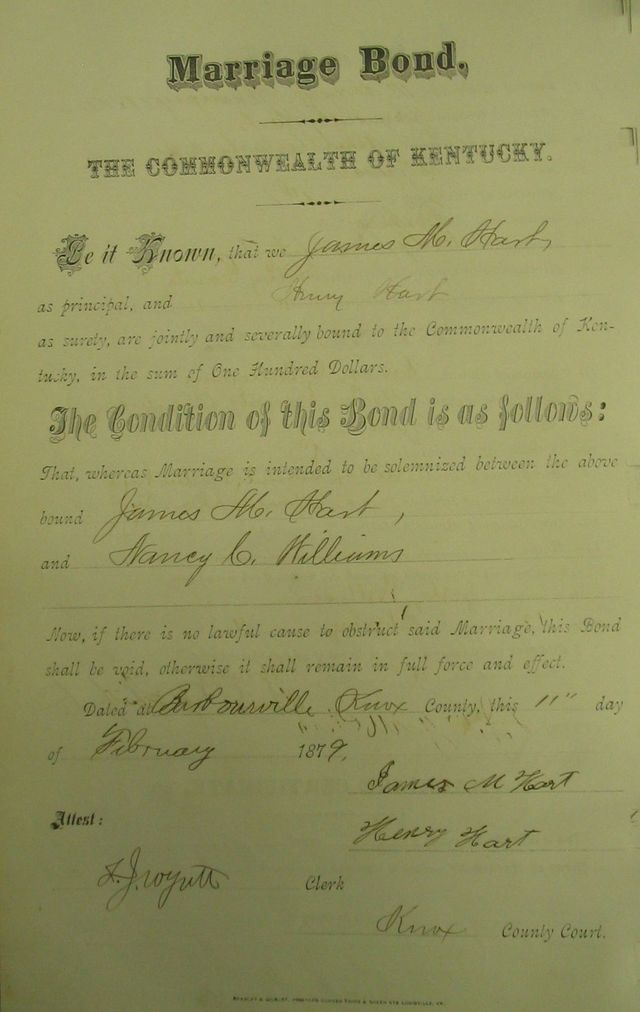 Marriage Bond.
THE COMMONWEALTH OF KENTUCKY.
Be it Known, that we James M. Hart,
as principal, and Henry Hart
as surety, are jointly and severally bound to the Commonwealth of Ken-
tucky, in the sum of One Hundred Dollars.
The Condition of this Bond is as follows:
That, whereas Marriage is intended to be solemnized between the above
bound James M. Hart,
and Nancy C. Williams
Now, if there is no lawful cause to obstruct said Marriage, this Bond
shall be void, otherwise it shall remain in full force and effect.
Dated at Barbourville Knox County, this 11" day
of February 1879,
James M Hart
Attest:
Henry Hart
Clerk
Knox County Court.